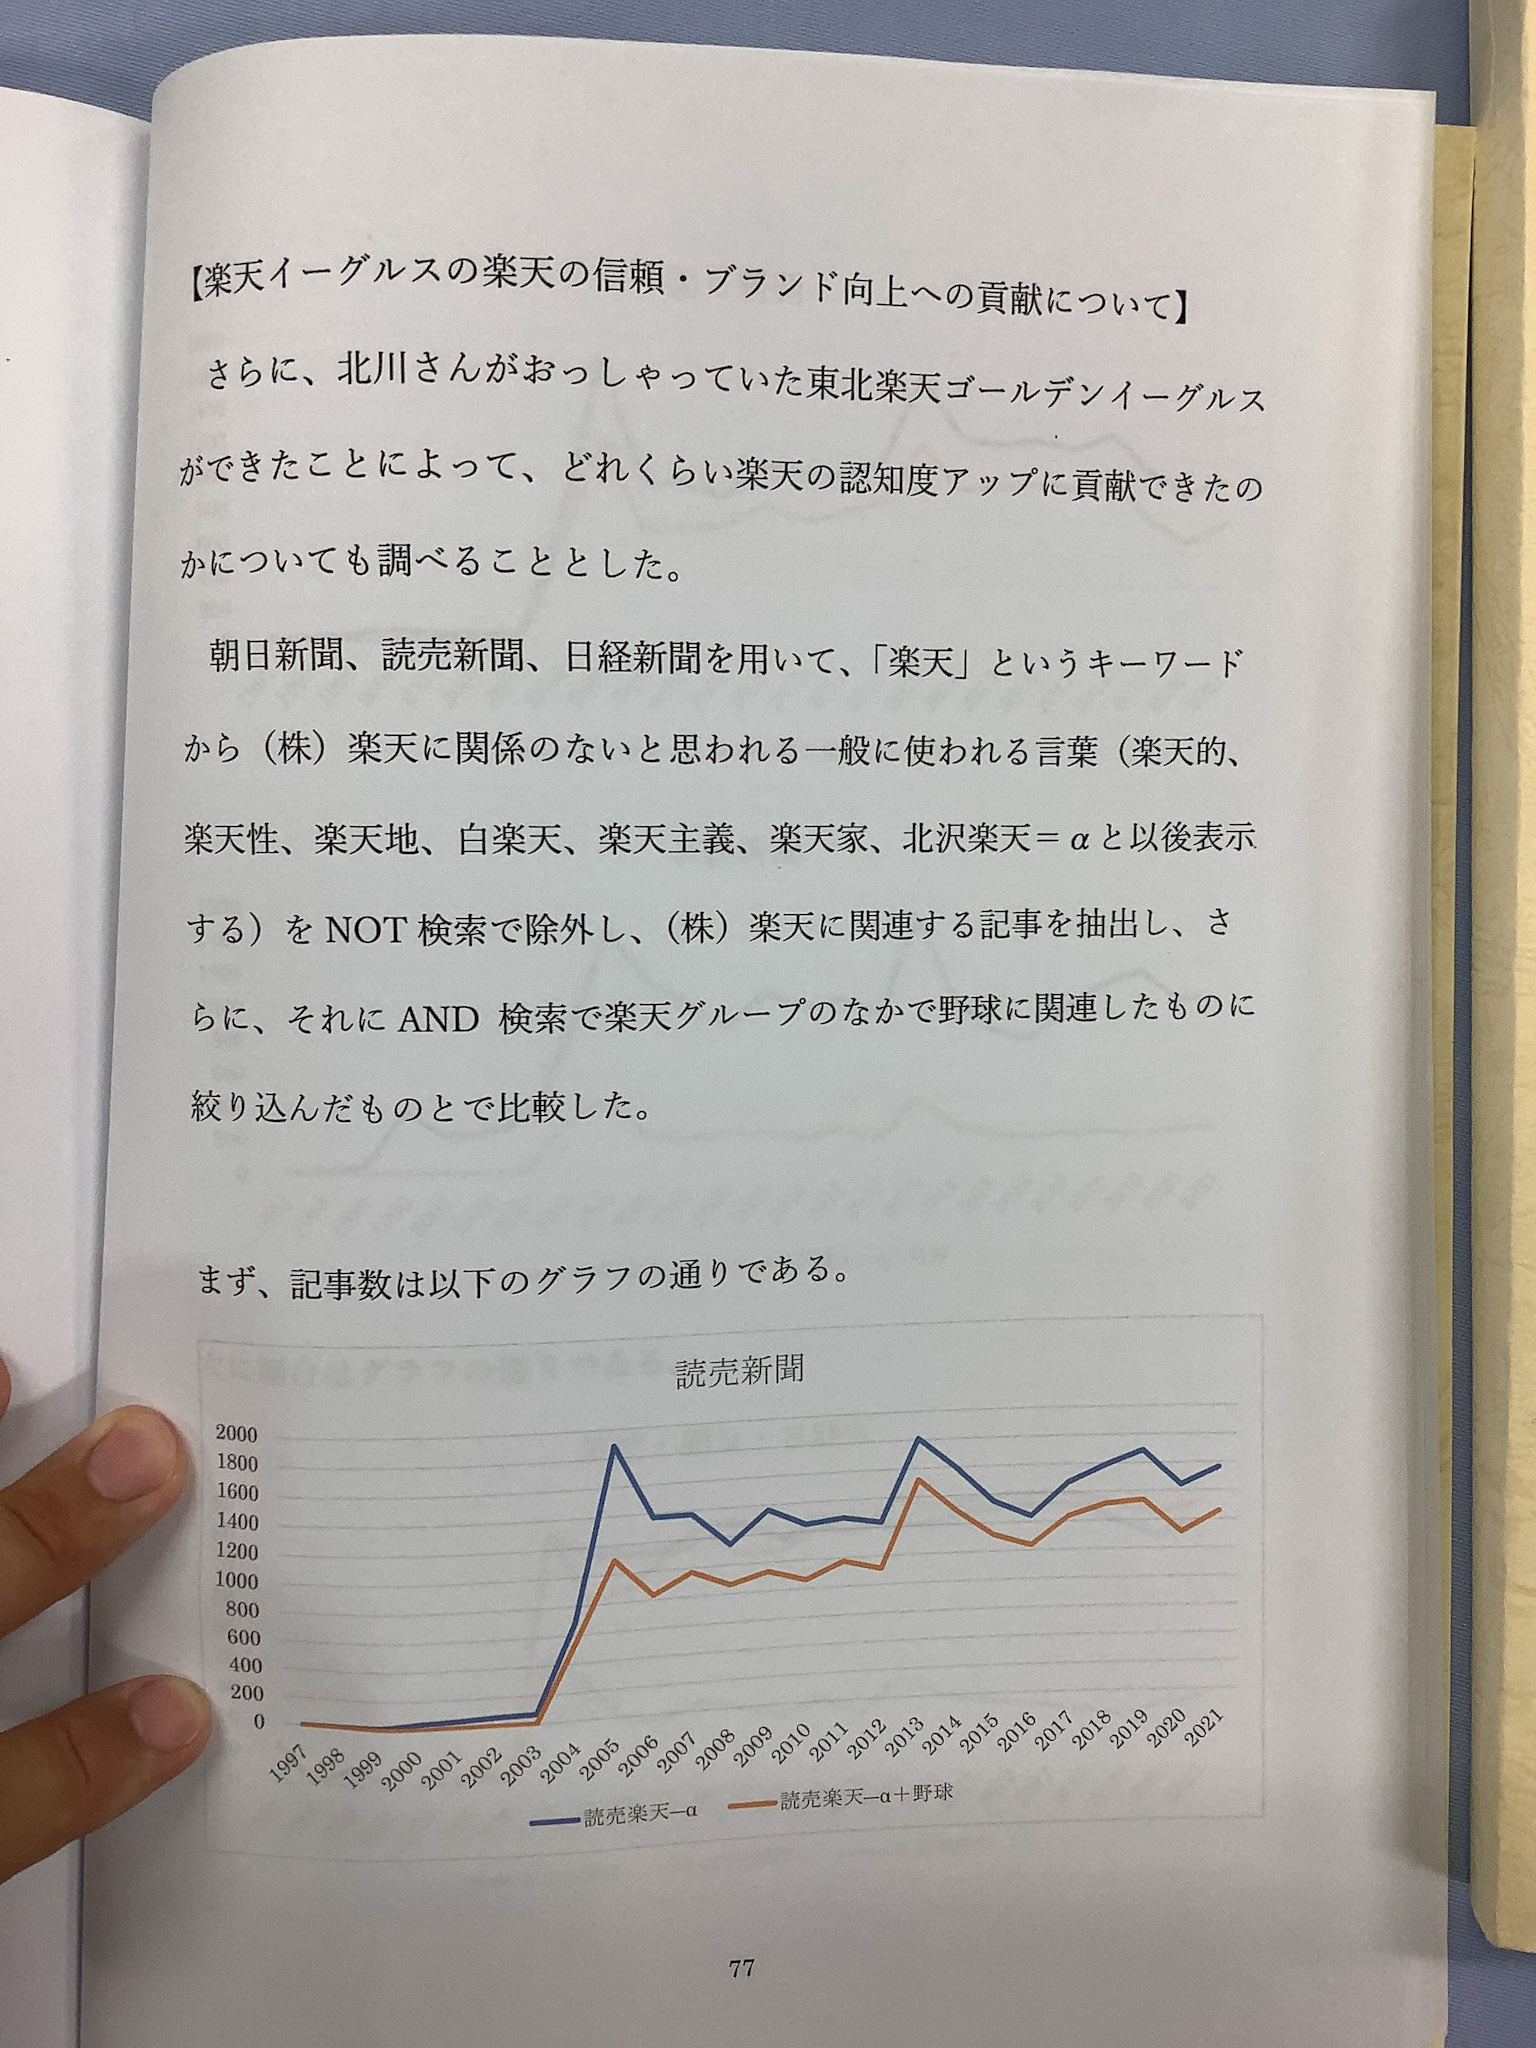 【楽天イーグルスの楽天の信頼・ブランド向上への貢献について】
さらに、北川さんがおっしゃっていた東北楽天ゴールデンイーグルス
ができたことによって、どれくらい楽天の認知度アップに貢献できたの
かについても調べることとした。
朝日新聞、読売新聞、日経新聞を用いて、「楽天」というキーワード
から（株）楽天に関係のないと思われる一般に使われる言葉（楽天的、
楽天性、楽天地、白楽天、楽天主義、楽天家、北沢楽天＝αと以後表示
する）をNOT検索で除外し、（株）楽天に関連する記事を抽出し、さ
らに、それにAND 検索で楽天グループのなかで野球に関連したものに
絞り込んだものとで比較した。
まず、記事数は以下のグラフの通りである。
読売新聞
2000
1800
1600
1400
1200
1000
800
600
400
200
0
1997 1998 1999 2000 2001 2002 2003 2004 2005 2006 2007 2008 2009 2010 2011 2012 2013 2014 2015 2016 2017 2018 2019 2020 2021
読売楽天―α 読売楽天―α＋野球
77